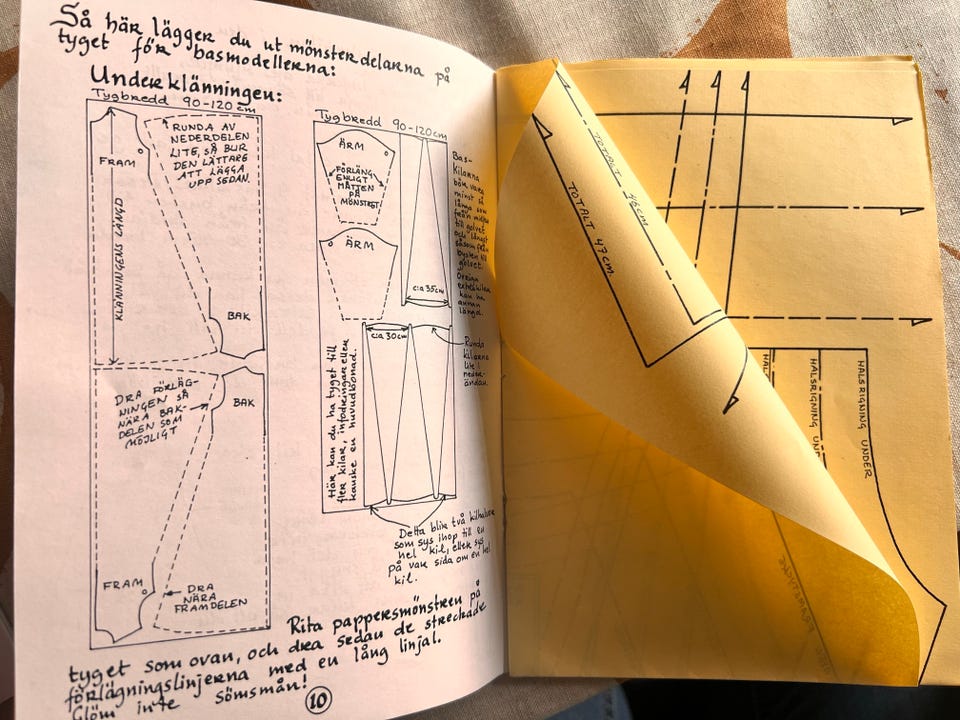 Så här lägger du ut mönsterdelarna på
tyget för basmodellerna:
Underklänningen:
Tygbredd 90-120 cm
FRAM
RUNDA AV
NEDERDELEN
LITE, SÅ BUR
DEN LÄTTARE
ATT LÄGGA
UPP SEDAN.
KLÄNNINGENS LÄNGD
BAK
DRA FÖRLÄG-
NINGEN SÅ
NÄRA BAK-
DELEN SOM
MÖJLIGT
BAK
FRAM
DRA
NÄRA
FRAMDELEN
Tygbredd 90-120cm
ÄRM
FÖRLÄNG
ENLIGT
MÅTTEN
PÅ
MÖNSTRET
ÄRM
c:a 35cm
Bas-
kilarna
bör vara
minst så
långa som
från midja
till golvet
och längst
såsom från
bysten till
golvet.
kan ha
annan
längd.
c:a 30cm
Runda
kilarna
lite i
neder-
ändan.
Här kan du ha tyget till
fler kilar, infodringar eller
kanske en huvudbonad.
Detta blir två kilhalvor
som sys ihop till en
hel kil, eller sys
på var sida om en hel
kil.
Rita pappersmönstren på
tyget som ovan, och dra sedan de streckade
förlägningslinjerna med en lång linjal.
Glöm inte sömsmån!
10
TOTALT 46cm
TOTALT 47cm.
HALSRIGNING UND
HALSRIGNING UNDER